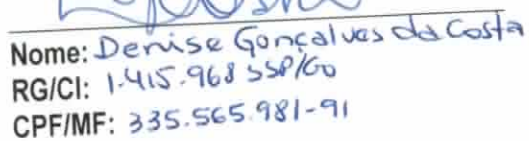 Nome: Denise Gonçalves da Costa
RG/CI: 1.415.968 SSP/GO
CPF/MF: 335.565.981-91